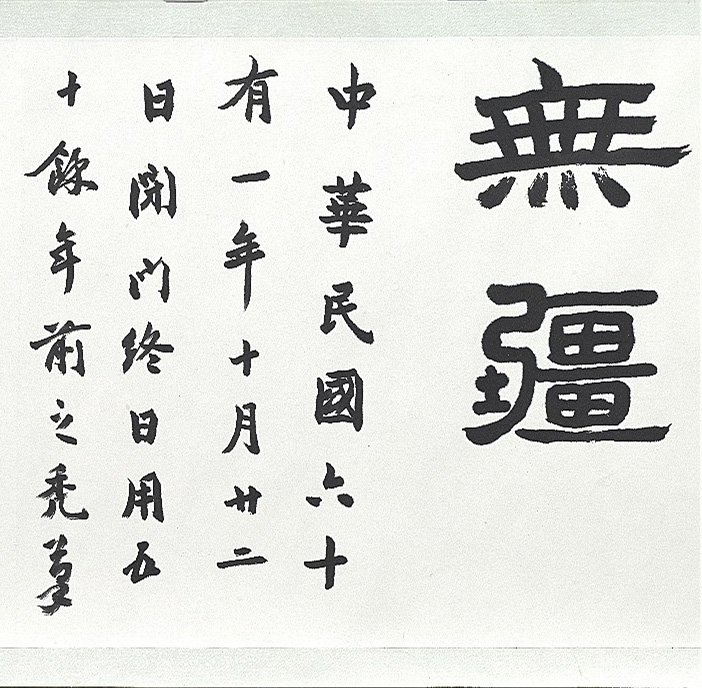 無疆
中華民國六十
有一年十月廿二
日閉門終日用五
十餘年前之禿筆